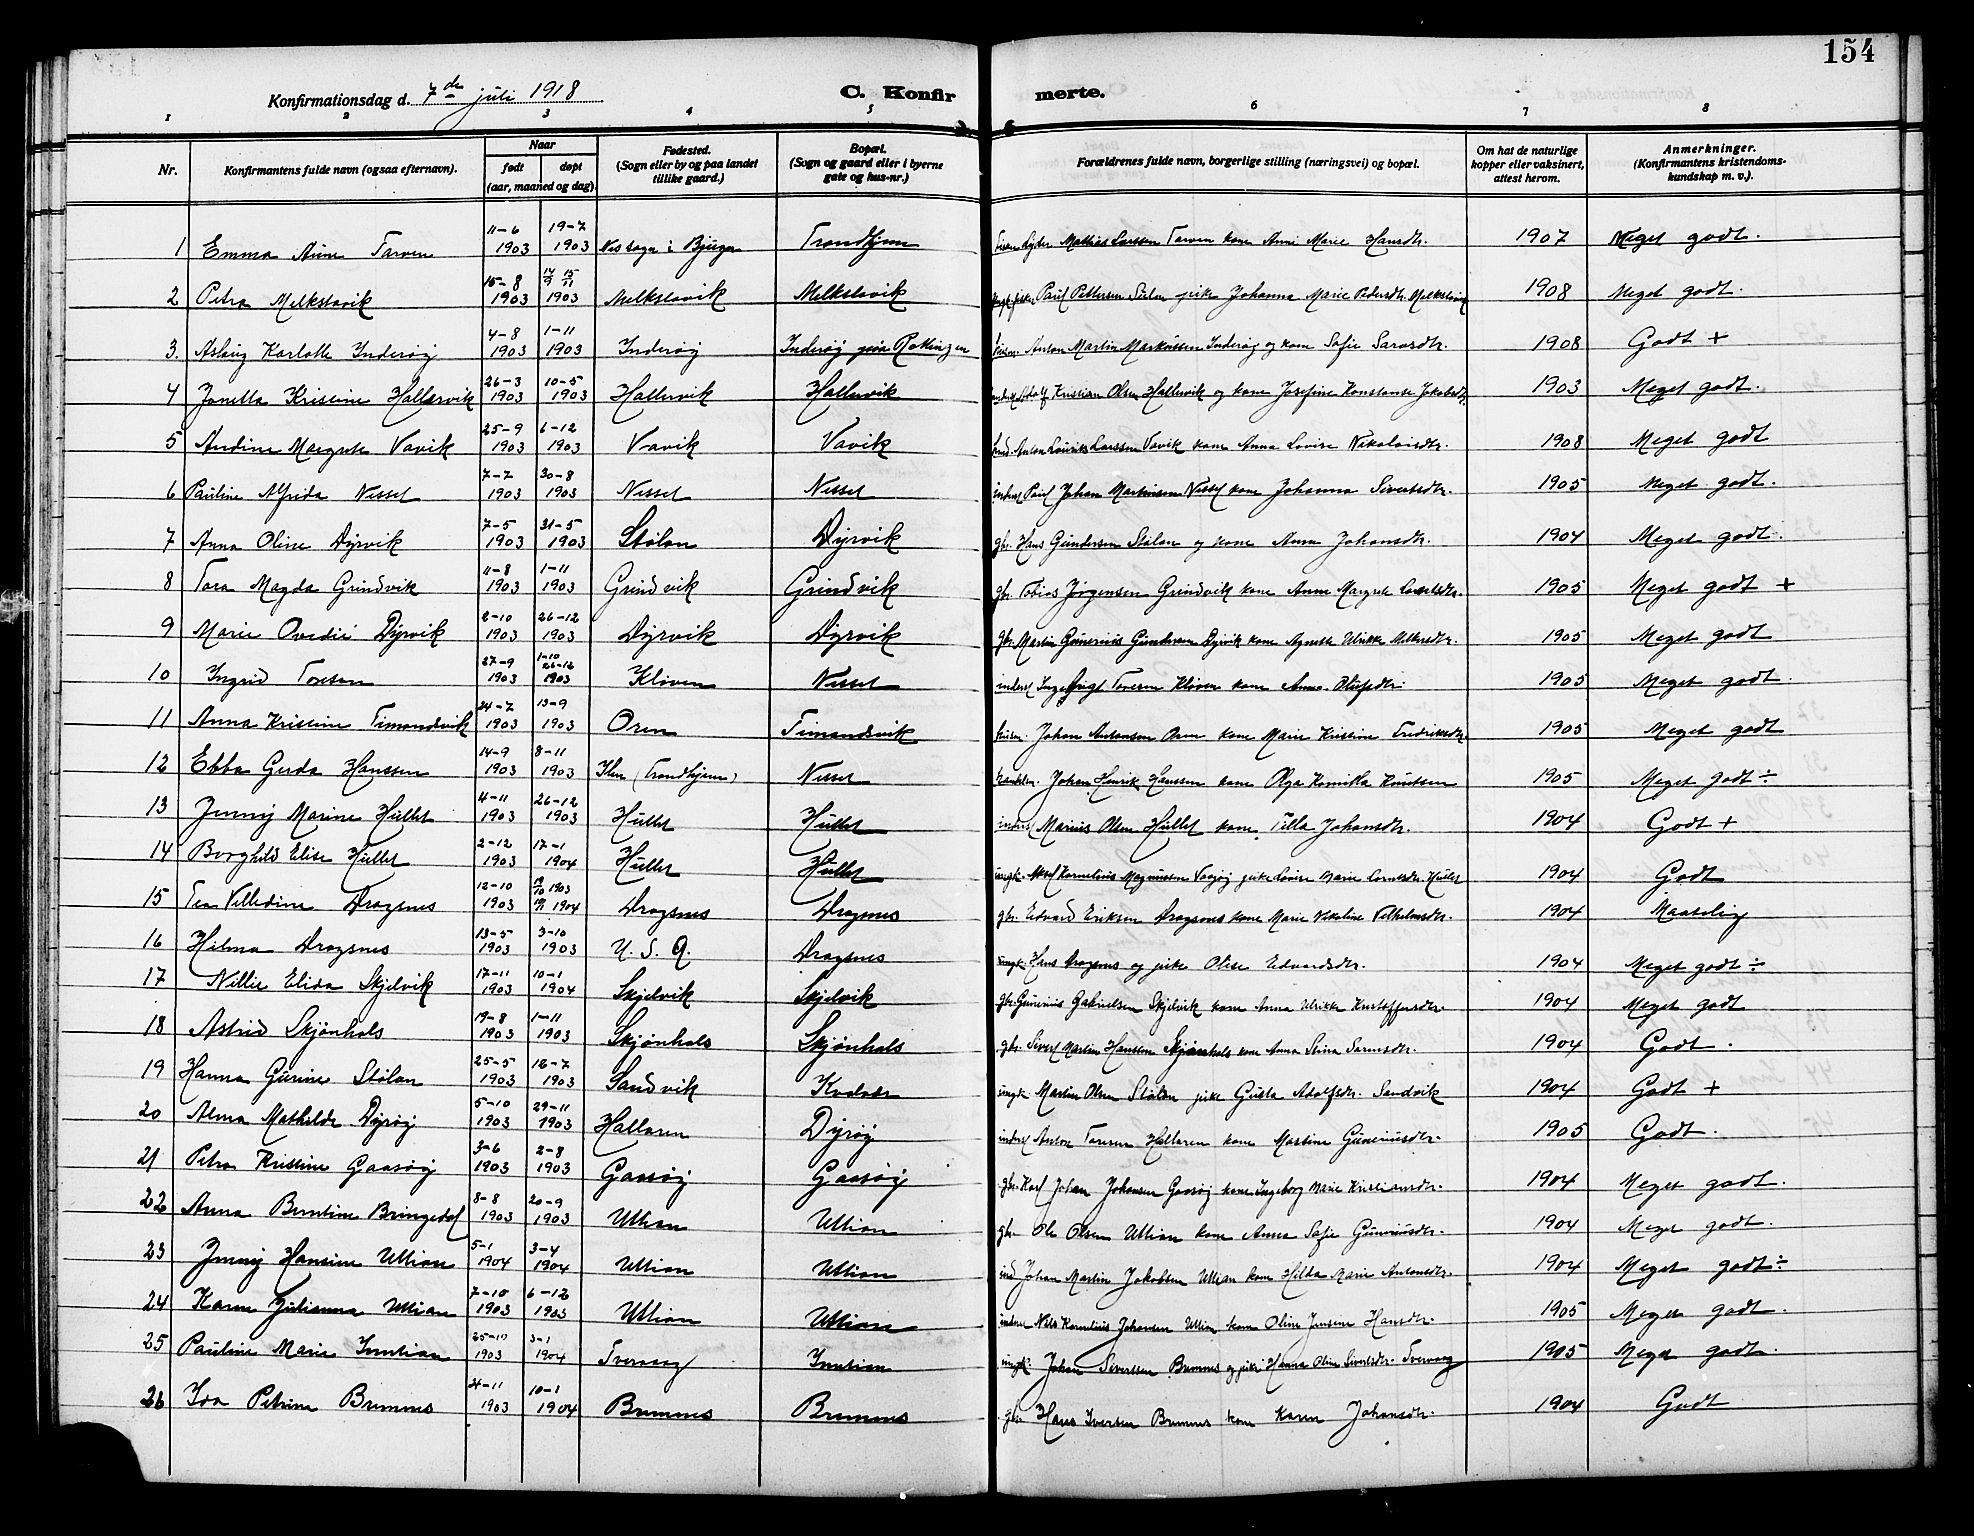 154
Konfirmationsdag d. 7de juli 1918 C. Konfir merte.
1 2 3 4 5 6 7 8
Nr. Konfirmantens fulde navn (ogsaa efternavn). Naar født døpt (aar, maaned og dag) Fødested. (Sogn eller by og paa landet tillike gaard.) Bopæl. (Sogn og gaard eller i byerne gate og hus-nr.) Forældrenes fulde navn, borgerlige stilling (næringsvei) og bopæl. Om hat de naturlige kopper eller vaksinert, attest herom. Anmerkninger. (Konfirmantens kristendoms-kundskap m. v.).
1 Emma Aune Tarven 11-6 1903 19-7 1903 Nes sogn i Bjugn Trondhjem Mathias Larssen Tarven kone Anne Marie Hansdtr. 1907 Meget godt.
2 Petra Melkstavik 15-8 1903 1903 Melkstavik Melkstavik Paul Pettersen pike Johanna Marie Pedersdtr. Melkstavik 1908 Meget godt.
3. Aslaug Karlotte Inderøy 4-8 1903 1-11 1903 Inderøy Inderøy Anton Martin Markussen Inderøy og kone Sofie 1908 Godt +
4 Janetta Kristine Hallervik 26-3 1903 10-5 1903 Hallervik Hallervik Adolf Kristian Olsen Hallervik og kone Josefine Konstanse Jakobsdtr. 1903 Meget godt.
5 Andine Margrete Vavik 25-9 1903 6-12 1903 Vavik Vavik Anton Larssen Vavik kone Anna Lovise Nikolaisdtr. 1908 Meget godt
6 Pauline Alfrida Nesset 7-7 1903 30-8 1903 Nesset Nesset inderst Paul Johan Martinsen Nesset kone Johanna Sivertsdtr. 1905 Meget godt.
7 Anna Oline Dyrvik 7-5 1903 31-5 1903 Stølan Dyrvik gbr. Hans Gundersen Stølan og kone Anna Johansdtr. 1904 Meget godt.
8 Tora Magda Grindvik 11-8 1903 1-11 1903 Grindvik Grindvik gbr. Tobias Jørgensen Grindvik kone Anne Margrete 1905 Meget godt +
9 Marie Ovedie Dyrvik 2-10 1903 26-12 1903 Dyrvik Dyrvik gbr. Martin Gunerius Gundersen Dyrvik kone Agnete Ulrikke 1905 Meget godt
10 Ingrid Toresen 27-9 1903 1-10 26-12 1903 Kloven Nesset inderst Toresen Kloven kone Anna Olufsdtr. 1905 Meget godt.
11 Anna Kristine Timandsvik 24-7 1903 13-9 1903 Oren Timandsvik Johan Antonsen Oren kone Marie Kristine Fredriksdtr. 1905 Meget godt
12 Ebba Gerda Hanssen 14-9 1903 8-11 1903 Ilen (Trondhjem) Nesset Johan Henrik Hanssen kone Olga Kamilla Knutssen 1905 Meget godt ÷
13 Jenny Marine Hullet 4-11 1903 26-12 1903 Hullet Hullet inderst Marius Olsen Hullet kone Tilla Johansdtr. 1904 Godt +
14 Borghild Elise Hullet 2-12 1903 17-1 1904 Hullet Hullet ungk. Aksel Kornelius Magnussen pike Lovise Marie Hullet 1904 Godt
15 Tea Villedine Dragsnes 12-10 1903 1903 1904 Dragsnes Dragsnes gbr. Edvard Eriksen Dragsnes kone Marie Nikoline Vilhelmsdtr. 1904 Maadelig
16 Hilma Dragsnes 13-5 1903 3-10 1903 U. S. A. Dragsnes ungk. Hans Dragsnes og pike Olise Edvardsdtr. 1904 Meget godt ÷
17 Nillie Elida Skjelvik 17-11 1903 10-1 1904 Skjelvik Skjelvik gbr. Gunerius Gabrielsen Skjelvik kone Anna Ulrikke Kristoffersdtr. 1904 Meget godt
18 Astrid Skjønhals 19-8 1903 1-11 1903 Skjønhals Skjønhals gbr. Sivert Martin Hanssen Skjønhals kone Anna Stina 1904 Godt.
19 Hanna Gurine Stølan 25-5 1903 12-7 1903 Sandvik ungk. Martin Olsen Stølan pike Gusta Adolfsdtr. Sandvik 1904 Godt +
20 Alma Mathilde Dyrøy 5-10 1903 29-11 1903 Hallaren Dyrøy inderst Anton Toresen Hallaren kone Martine Guneriusdtr. 1905 Godt.
21 Petra Kristine Gaasøy 3-6 1903 2-8 1903 Gaasøy Gaasøy gbr. Karl Johan Johansen Gaasøy kone Ingeborg Marie Kristiansdtr. 1904 Meget godt.
22 Anna Berntine Bringedal 8-8 1903 20-9 1903 Uttian Uttian gbr. Ole Olsen Uttian kone Anna Sofie Guneriusdtr. 1904 Meget godt.
23 Jenny Hansine Uttian 5-1 1904 3-4 1904 Uttian Uttian ind Johan Martin Jakobsen Uttian kone Hilda Marie Antonsdtr. 1904 Meget godt ÷
24 Karen Julianna Uttian 7-10 1903 6-12 1903 Uttian Uttian inderst Nils Kornelius Johansen Uttian kone Oline Jensine Hansdtr. 1905 Meget godt.
25 Pauline Marie Inntian 25-10 1903 3-1 1904 Tvervaag Inntian ungk. Johan Sivertsen Bremnes og pike Hanna Oline Sivertsdtr. Tvervaag 1905 Meget godt.
26 Ida Petrine Bremnes 24-11 1903 10-1 1904 Bremnes Bremnes gbr. Hans Iversen Bremnes kone Karen Johansdtr. 1904 Godt